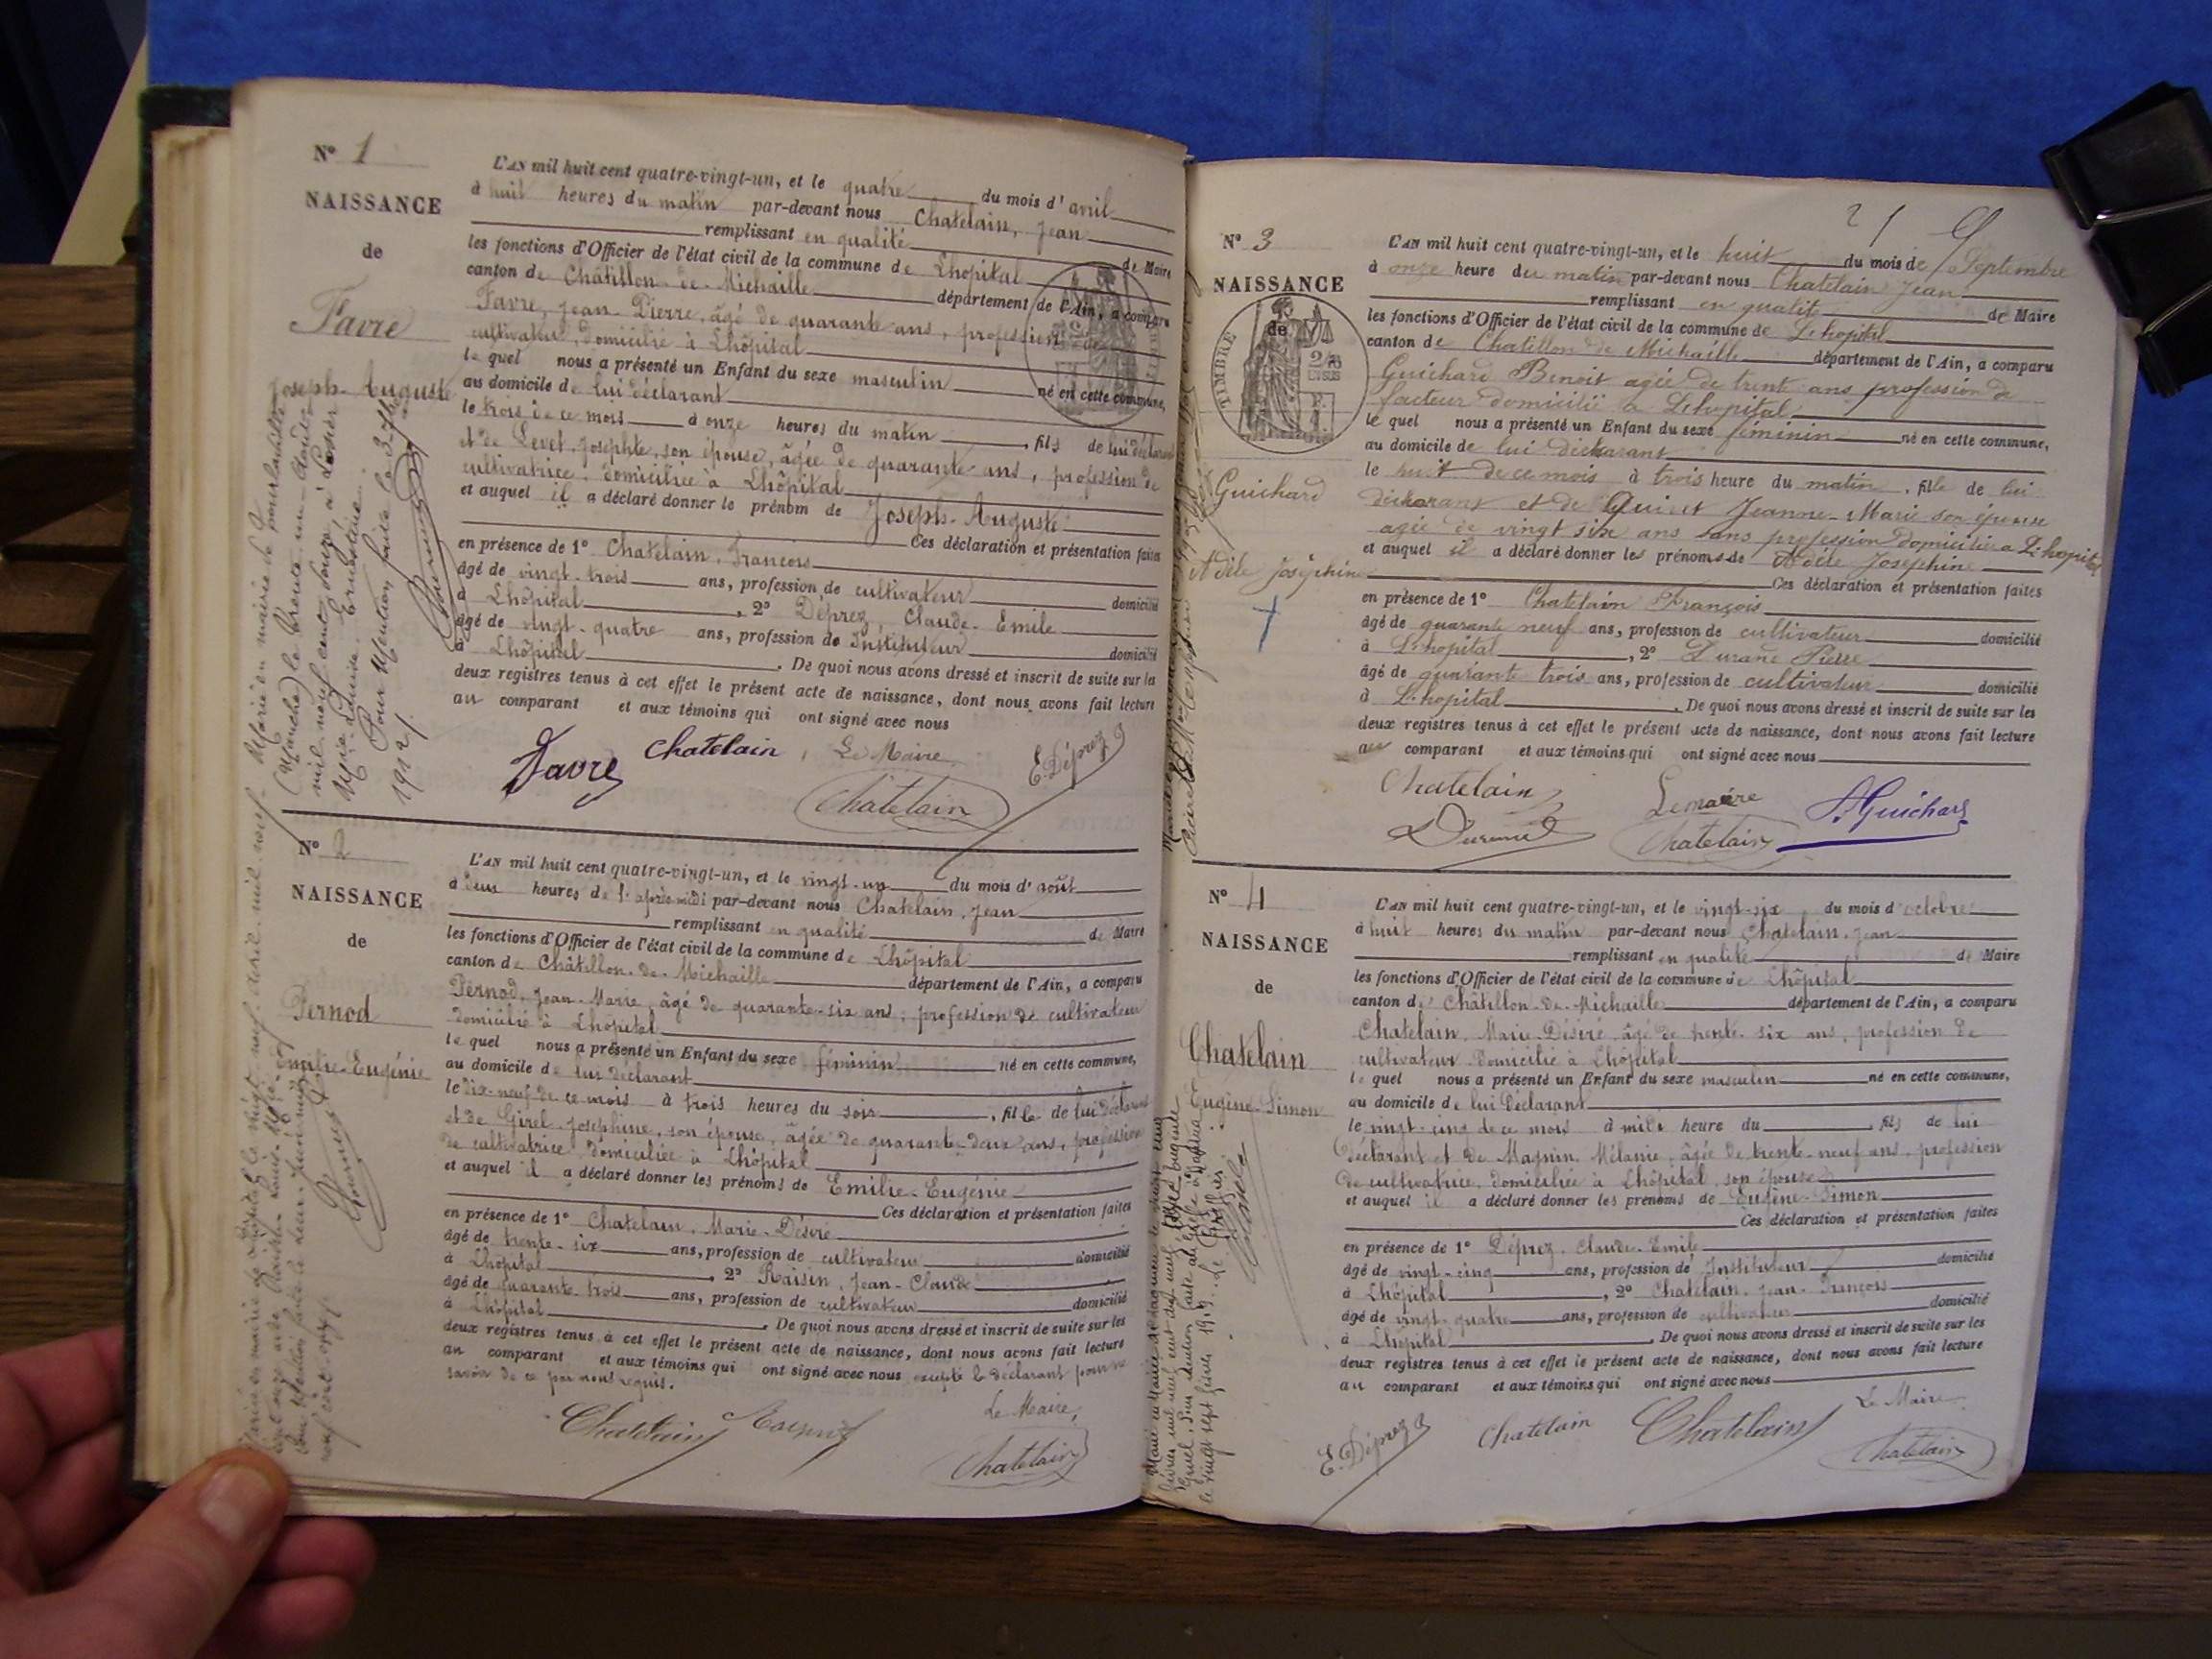 N° 1
NAISSANCE
de
Favre
Joseph-Auguste
L'AN mil huit cent quatre-vingt-un, et le quatre du mois d'avril
à huit heures du matin par-devant nous Chatelain, Jean
remplissant en qualité de Maire
les fonctions d'Officier de l'état civil de la commune de Lhôpital
canton de Châtillon-de-Michaille département de l'Ain, a comparu
Favre, Jean-Pierre, âgé de quarante ans, profession de
cultivateur, domicilié à Lhôpital
le quel nous a présenté un Enfant du sexe masculin né en cette commune,
au domicile de lui déclarant
le trois de ce mois à onze heures du matin, fils de lui déclarant
et de Levet, Josephte, son épouse, âgée de quarante ans, profession de
cultivatrice, domiciliée à Lhôpital
et auquel il a déclaré donner le prénom de Joseph-Auguste
Ces déclaration et présentation faites
en présence de 1° Chatelain, François
âgé de vingt-trois ans, profession de cultivateur domicilié
à Lhôpital, 2° Déprez, Claude-Emile
âgé de vingt-quatre ans, profession de Instituteur domicilié
à Lhôpital. De quoi nous avons dressé et inscrit de suite sur les
deux registres tenus à cet effet le présent acte de naissance, dont nous avons fait lecture
au comparant et aux témoins qui ont signé avec nous
Favre Chatelain, Le Maire, E. Déprez
Chatelain
Marié en mairie de
(Manche) le trente un
mil neuf cent douze, à
Marie Louise Ernestine
Pour Mention faite le
1912
N° 2
NAISSANCE
de
Pernod
Emilie-Eugénie
L'AN mil huit cent quatre-vingt-un, et le vingt-un du mois d'août
à deux heures de l'après midi par-devant nous Chatelain, Jean
remplissant en qualité de Maire
les fonctions d'Officier de l'état civil de la commune de Lhôpital
canton de Châtillon-de-Michaille département de l'Ain, a comparu
Pernod, Jean-Marie, âgé de quarante-six ans, profession de cultivateur
domicilié à Lhôpital
le quel nous a présenté un Enfant du sexe féminin né en cette commune,
au domicile de lui déclarant
le dix-neuf de ce mois à trois heures du soir, fille de lui déclarant
et de Girel, Josephine, son épouse, âgée de quarante-deux ans, profession
de cultivatrice, domiciliée à Lhôpital
et auquel il a déclaré donner les prénoms de Emilie-Eugénie
Ces déclaration et présentation faites
en présence de 1° Chatelain, Marie-Désiré
âgé de trente-six ans, profession de cultivateur domicilié
à Lhôpital, 2° Raisin, Jean-Claude
âgé de quarante-trois ans, profession de cultivateur domicilié
à Lhôpital. De quoi nous avons dressé et inscrit de suite sur les
deux registres tenus à cet effet le présent acte de naissance, dont nous avons fait lecture
au comparant et aux témoins qui ont signé avec nous excepté le déclarant pour ne
savoir de ce par nous requis.
Chatelain Le Maire,
Chatelain
N° 3
NAISSANCE
de
TIMBRE
Guichard
Adèle joséphine
L'AN mil huit cent quatre-vingt-un, et le huit du mois de Septembre
à onze heure du matin par-devant nous Chatelain Jean
remplissant en qualit de Maire
les fonctions d'Officier de l'état civil de la commune de L'hopital
canton de Chatillon de Michaille département de l'Ain, a comparu
Guichard Benoit agée de trent ans profession de
facteur domicilié a L'hopital
le quel nous a présenté un Enfant du sexe féminin né en cette commune,
au domicile de lui
le huit de ce mois à trois heure du matin, fille de lui
et de Jeanne-Marie son épouse
agée de vingt six ans sans profession domiciliée a L'hopital
et auquel il a déclaré donner les prénoms de Adèle Joséphine
Ces déclaration et présentation faites
en présence de 1° Chatelain François
âgé de quarante neuf ans, profession de cultivateur domicilié
à L'hopital, 2° Durand Pierre
âgé de quarante trois ans, profession de cultivateur domicilié
à L'hopital. De quoi nous avons dressé et inscrit de suite sur les
deux registres tenus à cet effet le présent acte de naissance, dont nous avons fait lecture
au comparant et aux témoins qui ont signé avec nous
Chatelain Lemaire Guichard
Durand Chatelain
N° 4
NAISSANCE
de
Chatelain
Eugène-Simon
L'AN mil huit cent quatre-vingt-un, et le vingt-six du mois d'octobre
à huit heures du matin par-devant nous Chatelain, Jean
remplissant en qualité de Maire
les fonctions d'Officier de l'état civil de la commune de Lhôpital
canton de Châtillon-de-Michaille département de l'Ain, a comparu
Chatelain, Marie-Désiré, âgé de trente-six ans, profession de
cultivateur domicilié à Lhôpital
le quel nous a présenté un Enfant du sexe masculin né en cette commune,
au domicile de lui déclarant
le vingt-cinq de ce mois à heure du, fils de lui
déclarant et de Magnin, Mélanie, âgée de trente-neuf ans, profession
de cultivatrice, domiciliée à Lhôpital, son épouse
et auquel il a déclaré donner les prénoms de Eugène-Simon
Ces déclaration et présentation faites
en présence de 1° Déprez, Claude-Emile
âgé de vingt-cinq ans, profession de Instituteur domicilié
à Lhôpital, 2° Chatelain, Jean-François
âgé de vingt-quatre ans, profession de cultivateur domicilié
à Lhôpital. De quoi nous avons dressé et inscrit de suite sur les
deux registres tenus à cet effet le présent acte de naissance, dont nous avons fait lecture
au comparant et aux témoins qui ont signé avec nous
E. Déprez Chatelain Chatelain Le Maire,
Chatelain